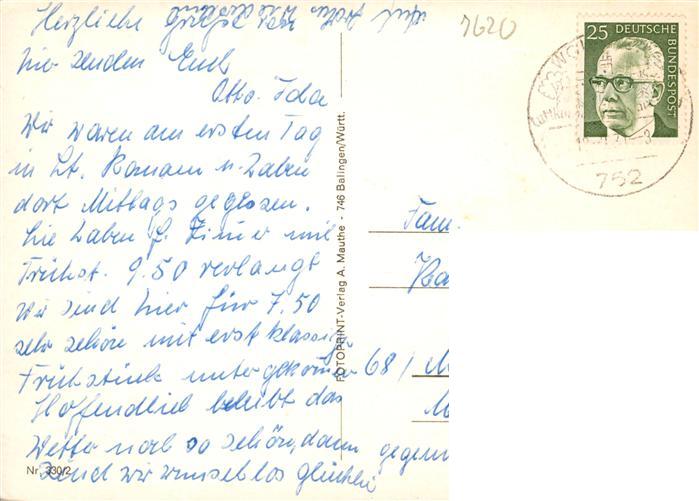 Herzliche Grüße vom
hier senden Euch
Otto. Ida
Wir waren am ersten Tag
in St. Roman u. haben
dort Mittags gegessen.
Sie haben f. Zimmer mit
Frühst. 9.50 verlangt
Wir sind hier für 7.50
sehr schön mit erstklassigem
Frühstück untergekommen
Hoffendlich bleibt das
Wetter noch so schön, dann
sind wir wunschlos glücklich
Nr. 330/2
FOTOPRINT-Verlag A. Mauthe - 746 Balingen/Württ.
7620
25 DEUTSCHE BUNDESPOST
WOL
Luftkur
752
Fam.
68